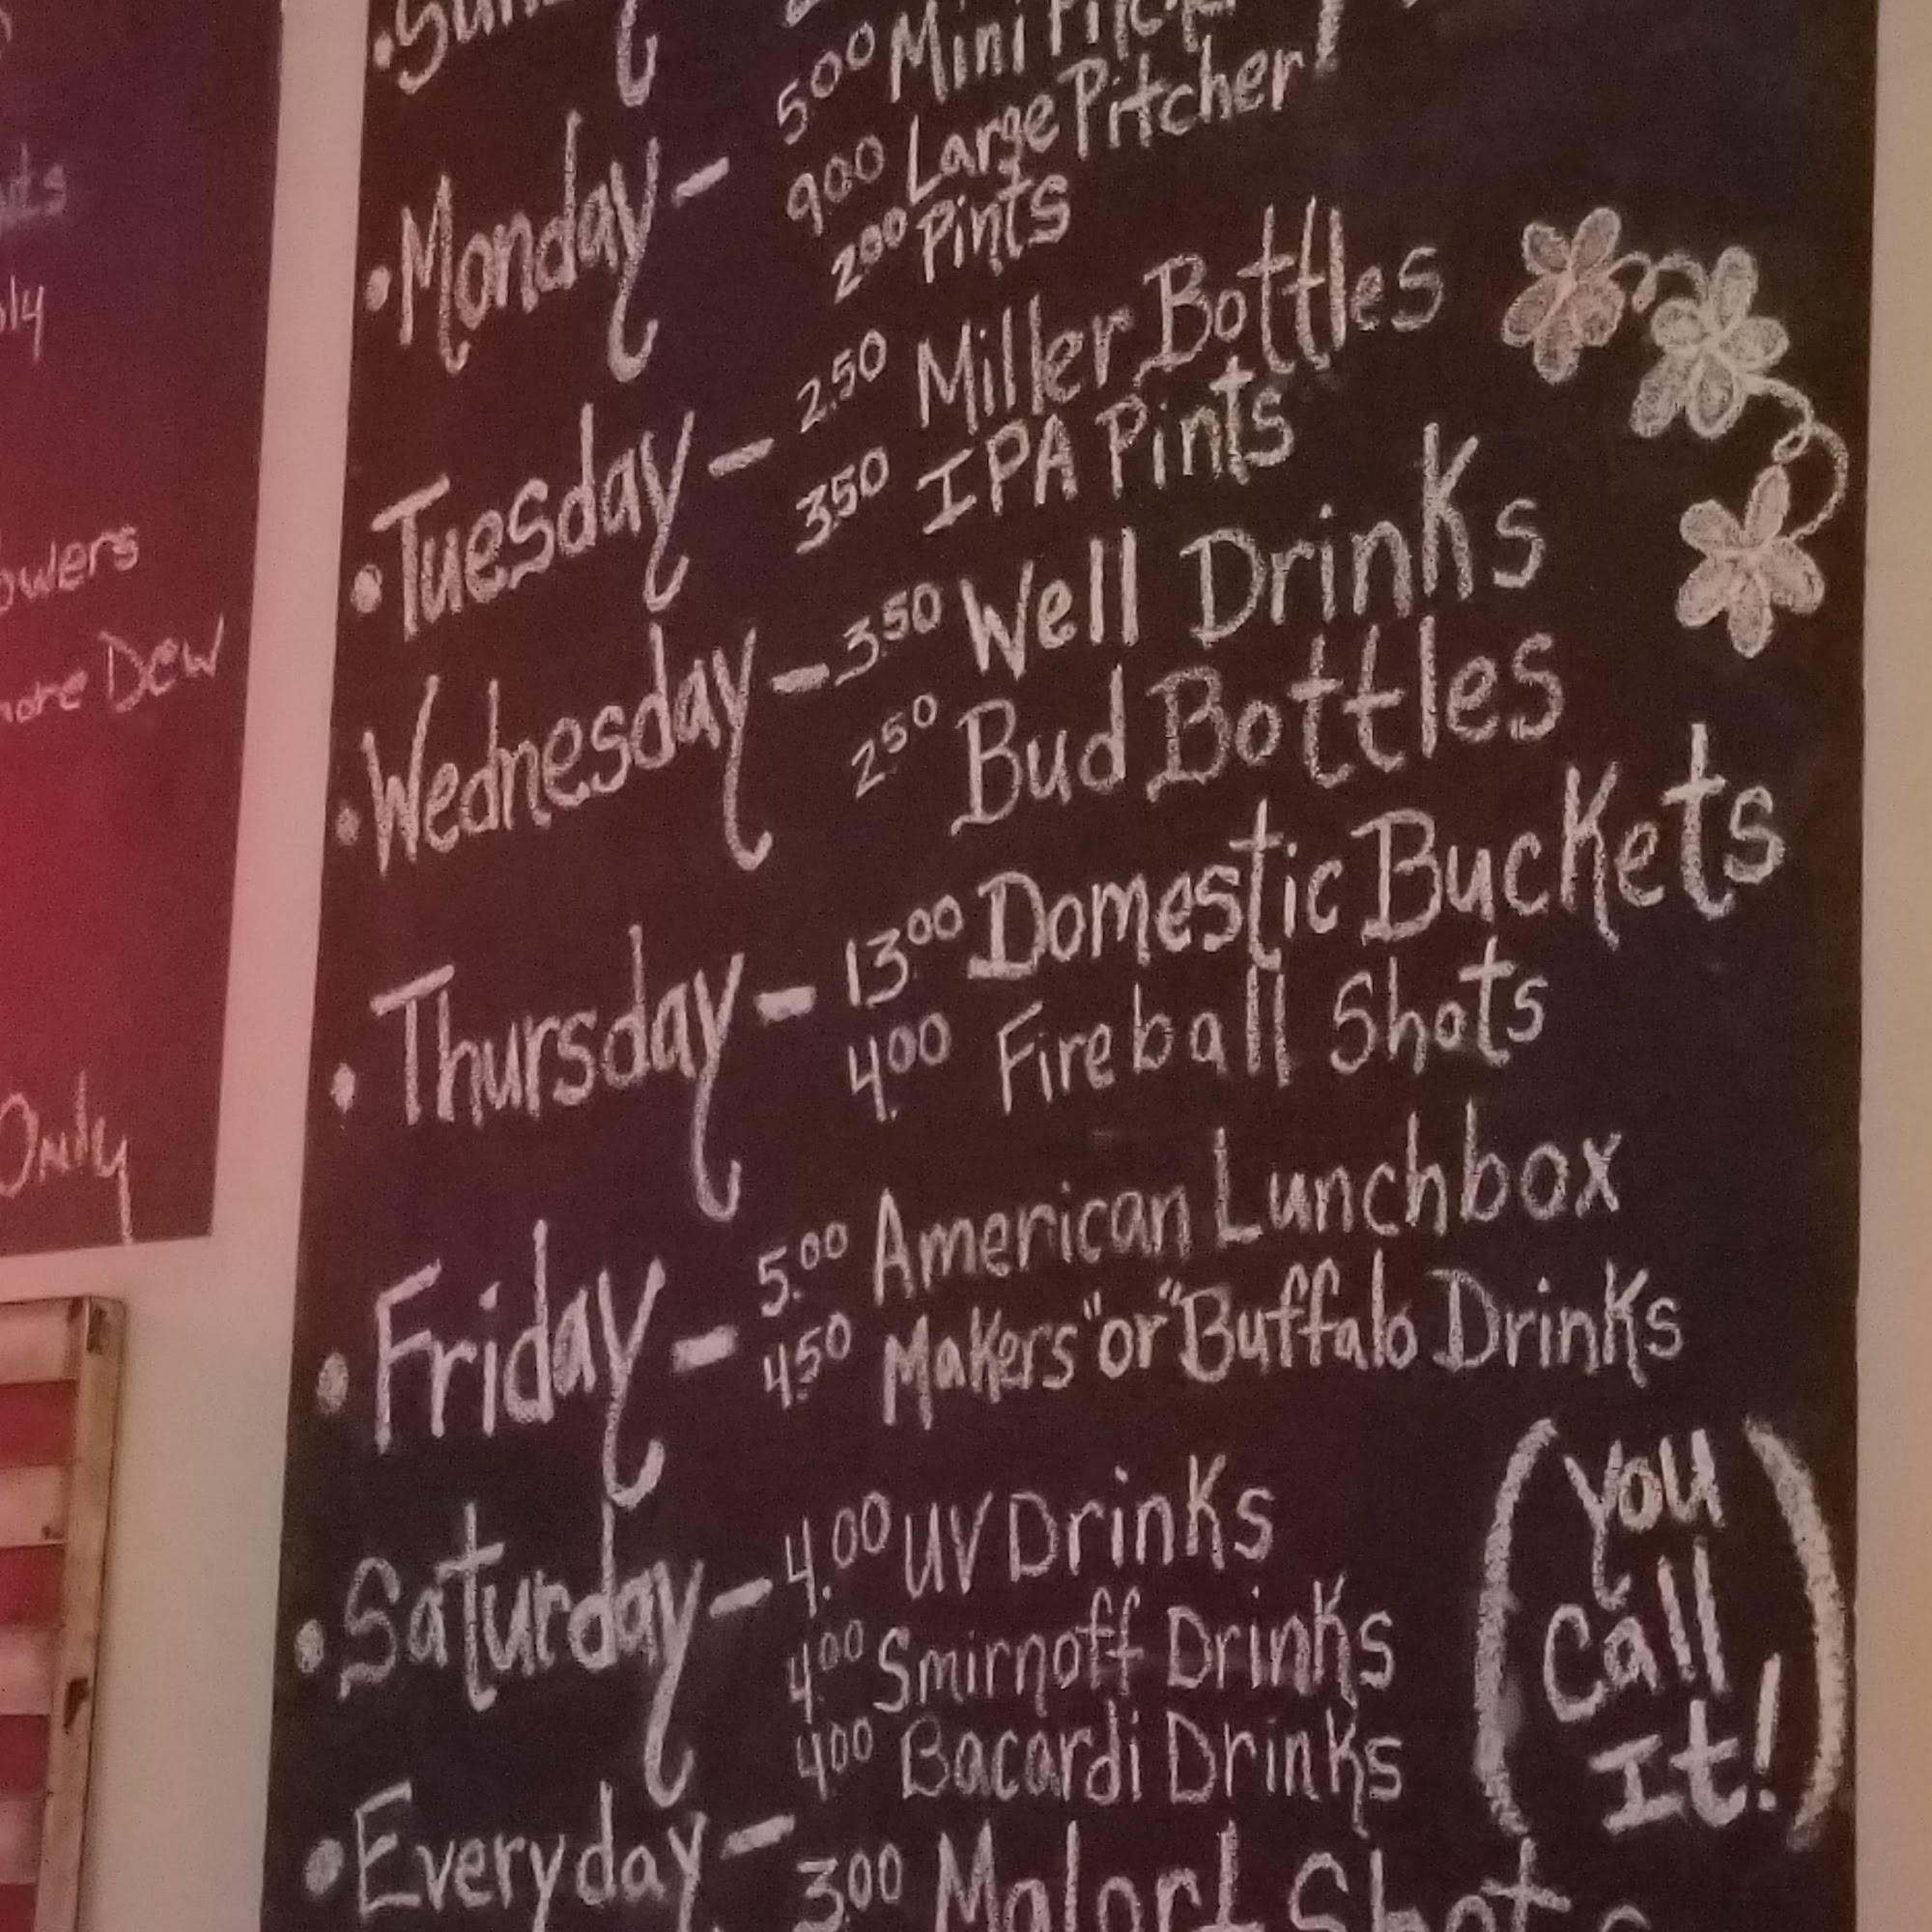 owers
Dew
Only
•Monday - 5.00 Mini
9.00 Large Pitcher
2.00 Pints
•Tuesday - 2.50 Miller Bottles
3.50 IPA Pints
•Wednesday - 3.50 Well Drinks
2.50 Bud Bottles
•Thursday - 13.00 Domestic Buckets
4.00 Fireball Shots
•Friday - 5.00 American Lunchbox
4.50 Makers "or" Buffalo Drinks
•Saturday - 4.00 UV Drinks
4.00 Smirnoff Drinks
4.00 Bacardi Drinks
(You
Call
It!)
•Everyday - 3.00 Malort Shots